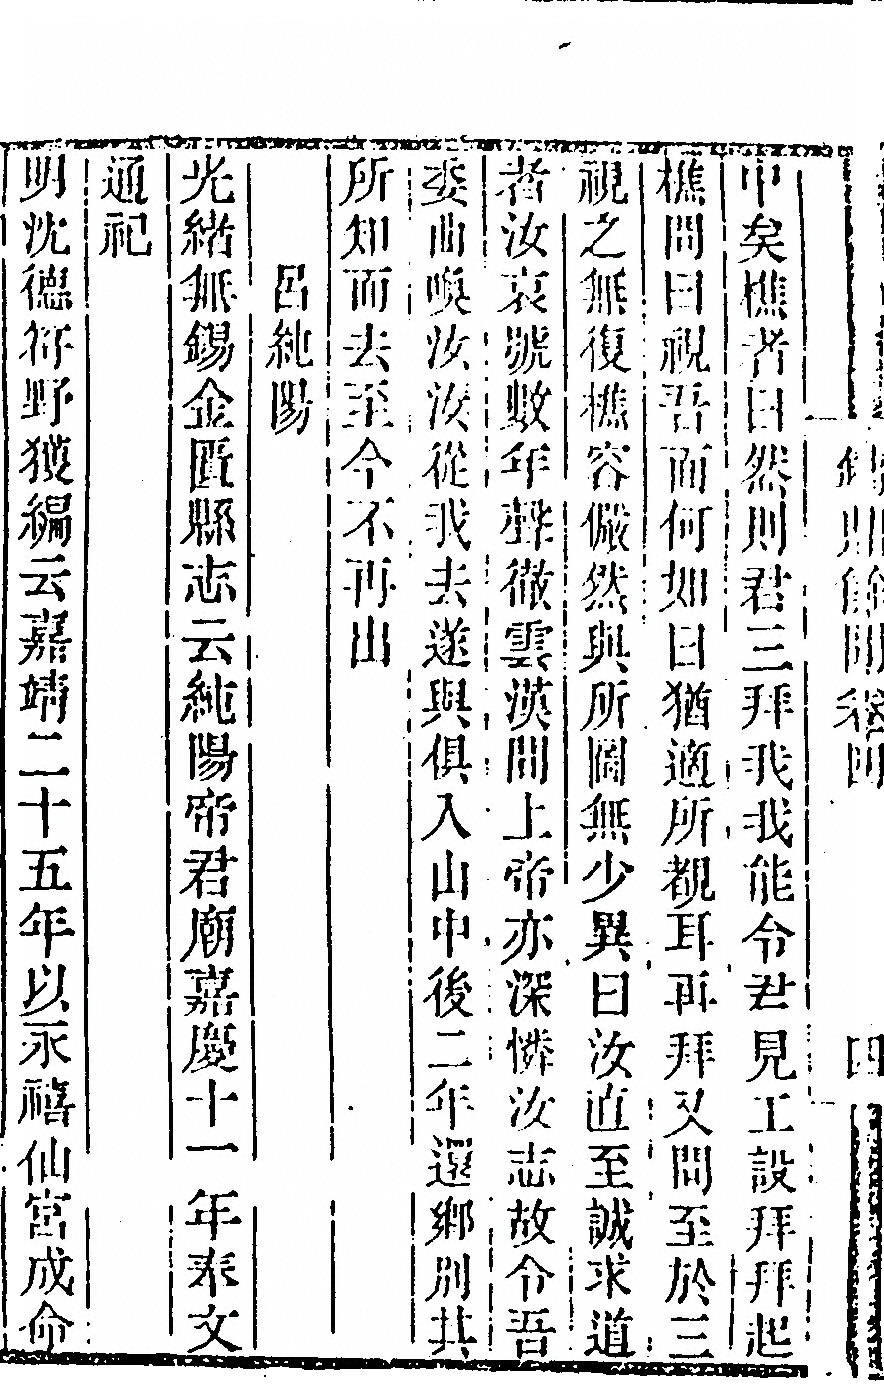 中矣樵者曰然則君三拜我我能令君見工設拜拜起
樵問曰視吾面何如曰猶適所覩耳再拜又問至於三
視之無復樵容儼然與所圖無少異曰汝直至誠求道
者汝哀號數年聲徹雲漢間上帝亦深憐汝志故令吾
委曲喚汝汝從我去遂與俱入山中後二年還鄉別其
所知而去至今不再出
呂純陽
光緒無錫金匱縣志云純陽帝君廟嘉慶十一年奉文
通祀
明沈德符野獲編云嘉靖二十五年以永禧仙宮成命